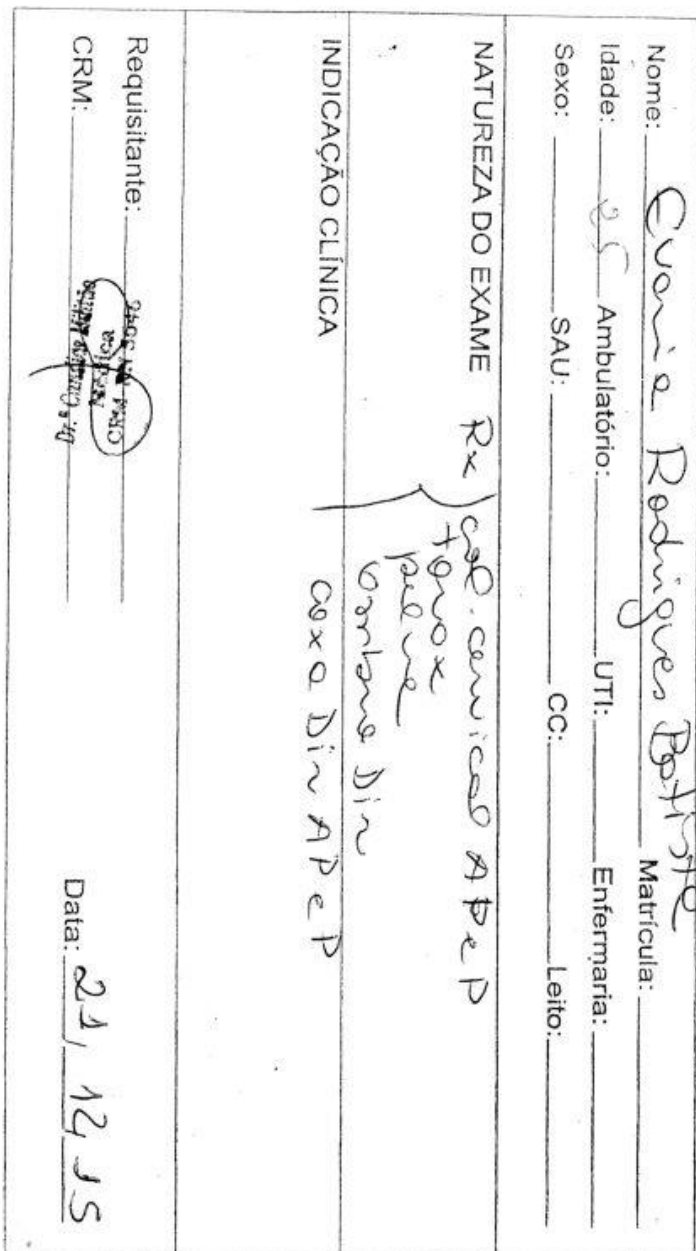 Nome: Evania Rodrigues Batista Matrícula:
Idade: 25 Ambulatório: UTI: Enfermaria:
Sexo: SAU: CC: Leito:
NATUREZA DO EXAME Rx col. cervical AP e P
torax
pelve
ombro Dir
INDICAÇÃO CLÍNICA coxa Dir AP e P
Requisitante:
CRM:
Data: 21, 12, 15